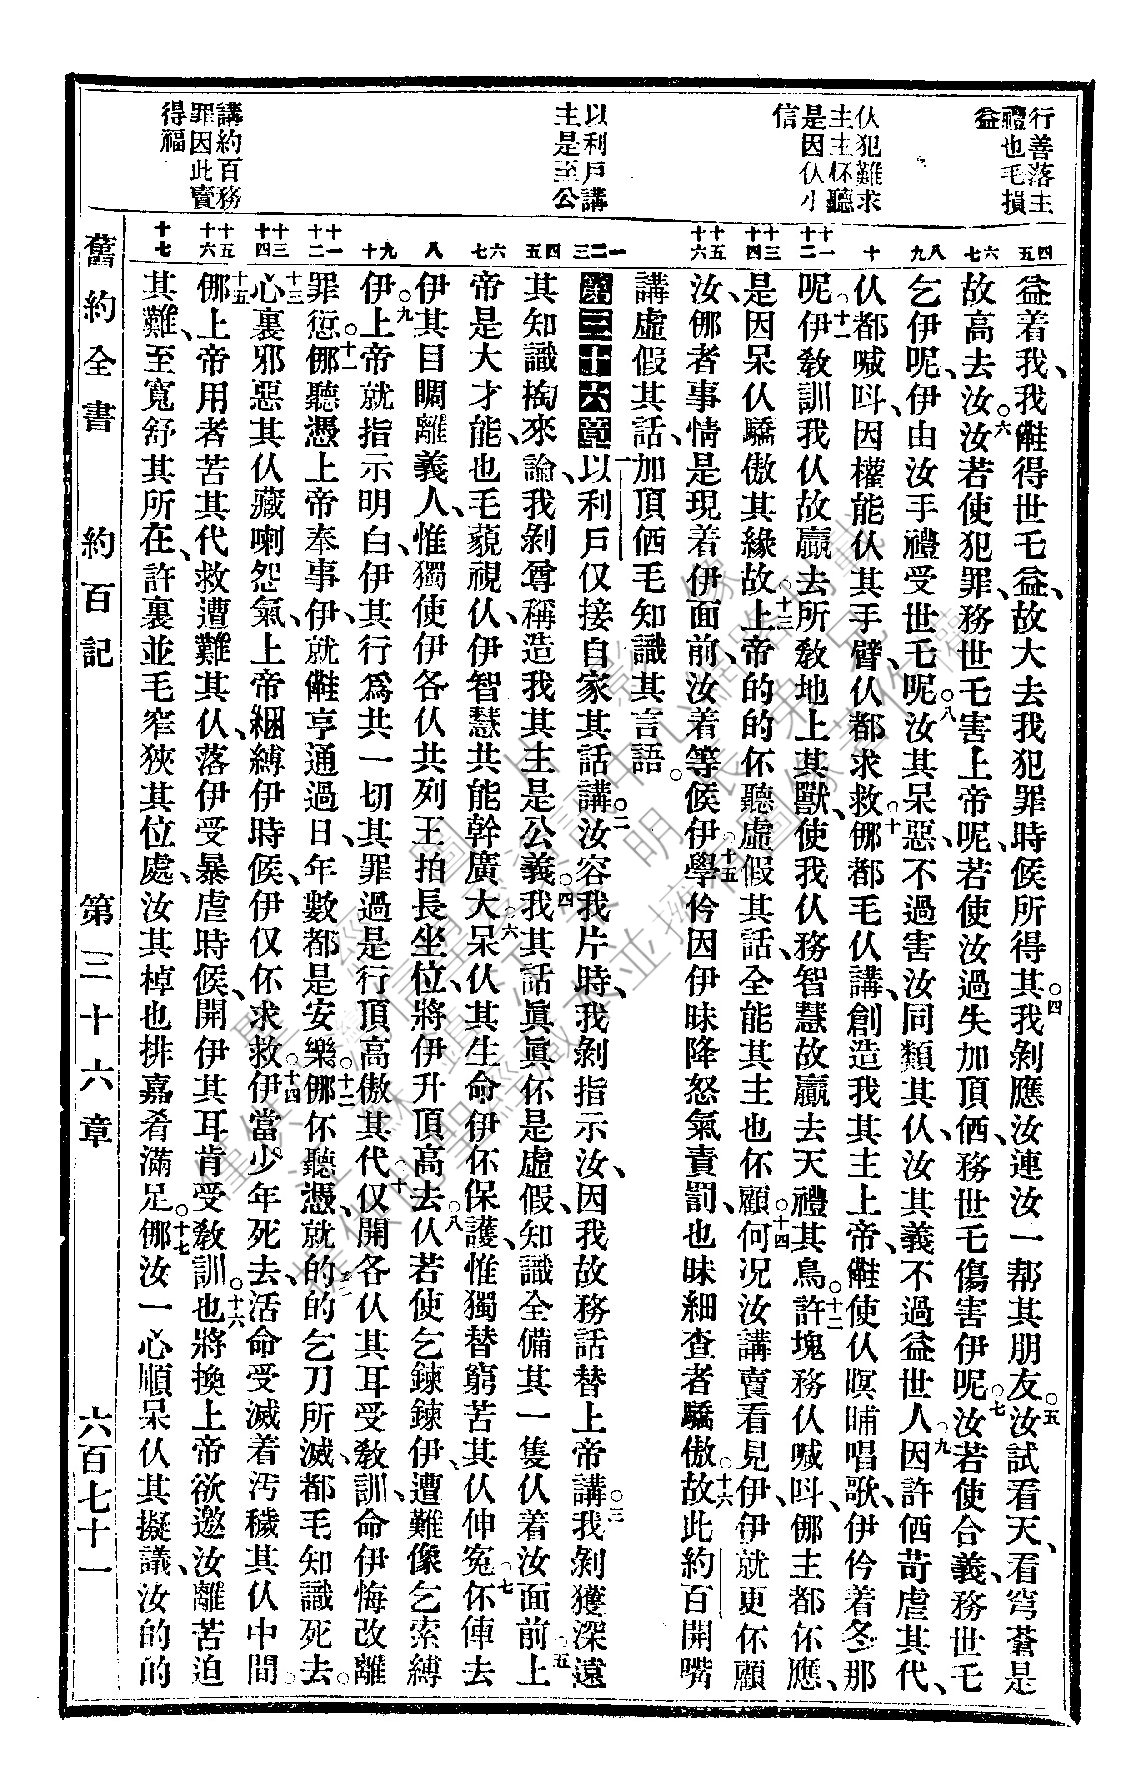 行善落主
禮也毛損
益
仈犯難求
主主怀聽
是因仈小
信
以利戶講
主是至公
講約百務
罪因此賣
得福
四五
六七
八九
十
十一十二
十三十四
十五十六
一二三
四五
六七
八
九十
十一十二
十三十四
十五十六
十七
益着我、我㒕得世乇益、故大去我犯罪時候所得其、○四我剝應汝、連汝一帮其朋友、○五汝試看天、看穹蒼是
故高去汝、○六汝若使犯罪、務世乇害上帝呢、若使汝過失加頂𠋡、務世毛傷害伊呢、○七汝若使合義、務世乇
乞伊呢、伊由汝手禮受世乇呢、○八汝其呆惡、不過害汝同類其仈、汝其義、不過益世人、○九因許𠋡苛虐其代、
仈都喊呌、因權能仈其手臂、仈都求救、○十㑚都毛仈講、創造我其主上帝、㒕使仈暝晡唱歌、伊仱着冬那
呢、○十一伊敎訓我仈、故贏去所敎地上其獸、使我仈務智慧、故贏去天禮其鳥、○十二許塊務仈喊呌、㑚主都怀應、
是因呆仈驕傲其緣故、○十三上帝的的怀聽虛假其話、全能其主也怀顧、○十四何况汝講賣看見伊、伊就更怀顧
汝、㑚者事情是現着伊面前、汝着等候伊、○十五學仱因伊昧降怒氣責罰、也昧細查者驕傲、○十六故此約百開嘴
講虛假其話、加頂𠋡毛知識其言語。
第三十六章 一以利戶仅接自家其話講、○二汝容我片時、我剝指示汝、因我故務話替上帝講、○三我剝獲深遠
其知識掏來論、我剝尊稱造我其主是公義、○四我其話眞眞怀是虛假、知識全備其一隻仈着汝面前、○五上
帝是大才能、也毛藐視仈、伊智慧共能幹廣大、○六呆仈其生命伊怀保護、惟獨替窮苦其仈伸寃、○七怀俥去
伊其目睭離義人、惟獨使伊各仈共列王拍長坐位、將伊升頂高去、○八仈若使乞鍊鍊伊、遭難像乞索縛
伊、○九上帝就指示明白、伊其行爲共一切其罪過、是行頂高傲其代、○十仅開各仈其耳受敎訓、命伊悔改離
罪愆、○十一㑚聽憑上帝奉事伊、就㒕亨通過日、年數都是安樂、○十二㑚怀聽憑、就的的乞刀所滅、都毛知識死去。
○十三心裏邪惡其仈藏喇怨氣、上帝綑縛伊時候、伊仅怀求救、○十四伊當少年死去、活命受滅着汚穢其仈中間。
○十五㑚上帝用者苦其代、救遭難其仈、落伊受暴虐時候、開伊其耳肯受敎訓。○十六也將換上帝欲邀汝離苦迫
其難、至寬舒其所在、許裏並毛窄狹其位處、汝其棹也排嘉肴滿足。○十七㑚汝一心順呆仈其擬議、汝的的
舊約全書　約百記　第三十六章　六百七十一